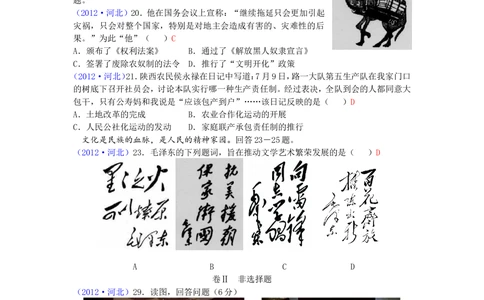 题。
（2012·河北）20．他在国务会议上宣称：“继续拖延只会更加引起
灾祸，只会对整个国家，特别是对地主会造成有害的、灾难性的后
果。”为此“他”（ ）C
A．颁布了《权利法案》 B．通过了《解放黑人奴隶宣言》
C．签署了废除农奴制的法令 D．推行了“文明开化”政策
（2012·河北）21.陕西农民侯永禄在日记中写道：7月9日，路一大队第五生产队在我家门口
的树底下召开社员会，讨论本队实行哪一种生产责任制。经过表决，全队到会的人都同意大
包干，只有公寿妈和我说是“应该包产到户”……该日记反映的是（ ）D
A．土地改革的完成 B．农业合作化运动的开展
C．人民公社化运动的发动 D．家庭联产承包责任制的推行
文化是民族的血脉，是人民的精神家园。回答23－25题。
（2012·河北）23．毛泽东的下列题词，旨在推动文学艺术繁荣发展的是（ ）D
星星之火
可以燎原
毛泽东
抗美援朝
保家卫国
向雷锋
同志学习
毛泽东
百花齐放
推陈出新
毛泽东
A B C D
卷Ⅱ 非选择题
（2012·河北）29．读图，回答问题（6分）